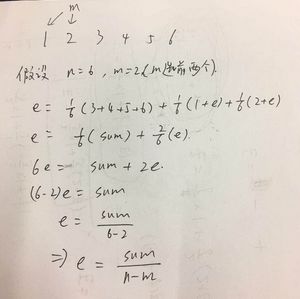 m
1 2 3 4 5 6
假设 n=6, m=2 (m选前两个).
e = 1/6 (3+4+5+6) + 1/6 (1+e) + 1/6 (2+e)
e = 1/6 (sum) + 2/6 (e).
6e = sum + 2e.
(6-2)e = sum
e = sum / 6-2
⇒ e = sum / n-m